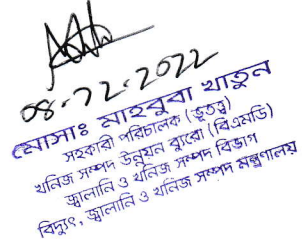 ০৪.১২.২০২২
মোসাঃ মাহবুবা খাতুন
সহকারী পরিচালক (ভূতত্ত্ব)
খনিজ সম্পদ উন্নয়ন ব্যুরো (বিএমডি)
জ্বালানি ও খনিজ সম্পদ বিভাগ
বিদ্যুৎ, জ্বালানি ও খনিজ সম্পদ মন্ত্রণালয়